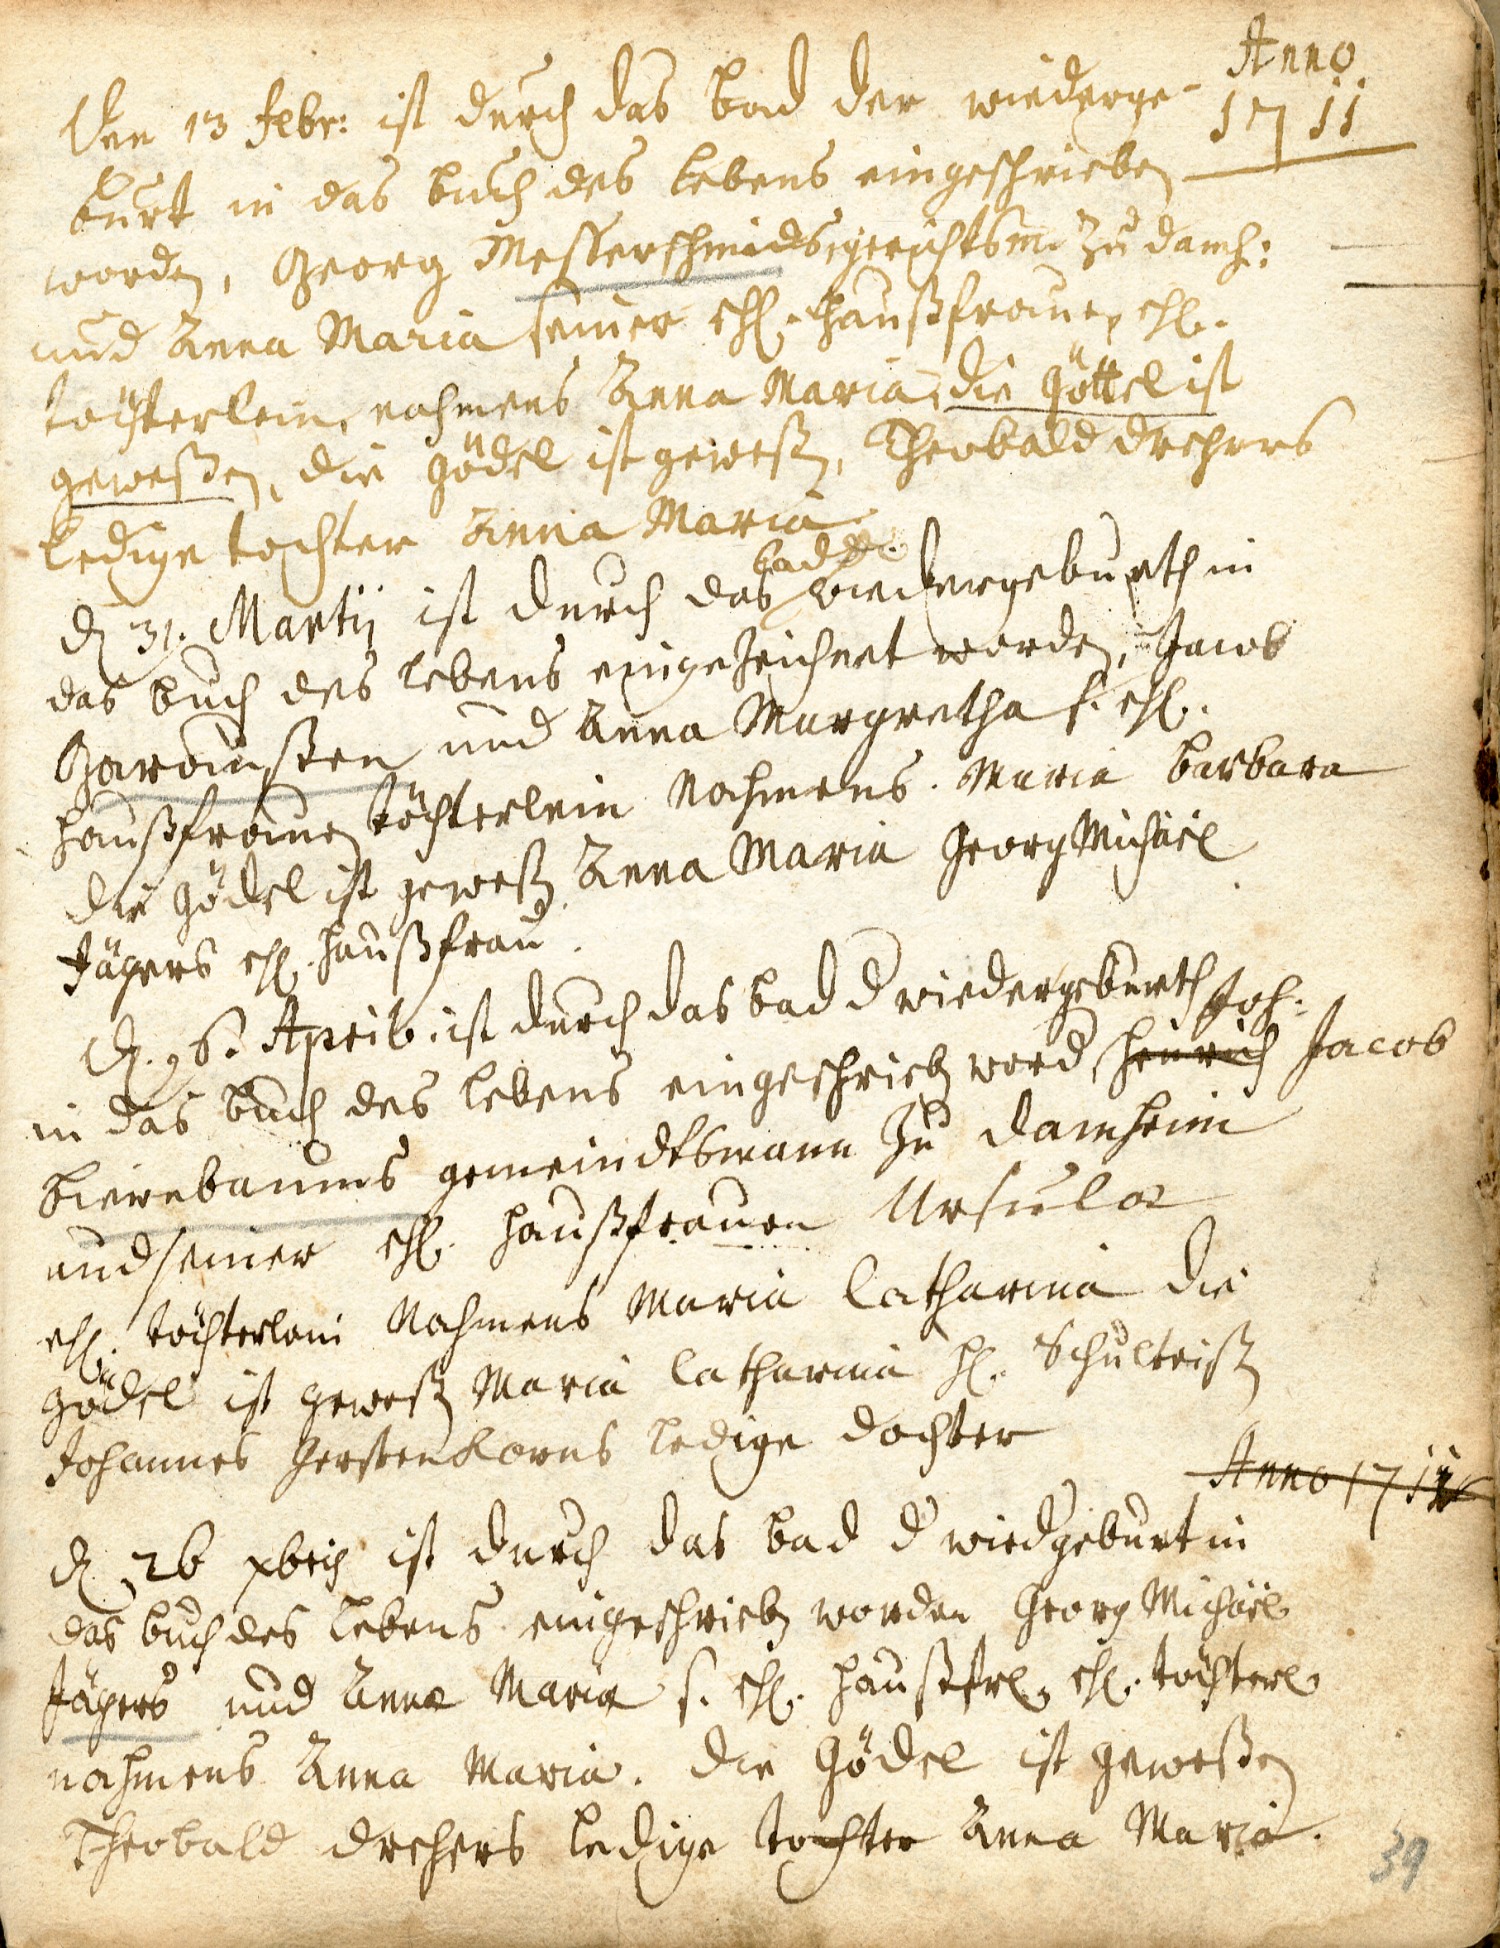 Anno
1711
Den 13 Febr: ist durch das bad der wiederge-
burt in das buch des lebens eingeschrieben
worden, Georg Messerschmids, gerichtsm. zu damh:
und Anna Maria seiner ehl. haußfrauen ehl.
töchterlein, nahmens Anna Maria, die Göttel ist
geweßen, die Gödel ist geweßen, Theobald Drehers
ledige tochter Anna Maria.
bad der
den 31. Martij ist durch das wiedergeburth in
das buch des lebens eingezeichnet worden, Jacob
und Anna Margretha s. ehl.
haußfrauen töchterlein Nahmens. Maria Barbara
die Gödel ist geweßen Anna Maria Georg Michäel
Jägers ehl. haußfrau.
den. 26. April. ist durch das bad d wiedergeburth Joh:
in das buch des lebens eingeschrieben word henrich Jacob
bierebaums gemeindtsmann zu damheim
und seiner ehl. haußfrauen Ursula
ehl. töchterlein Nahmens Maria Catharina die
Gödel ist geweßen Maria Catharina H. Schulteiß
Johannes Gerstenkorns ledige dochter
Anno 1711
den 26 xbris ist durch das bad d wiedgeburt in
das buch des lebens eingeschrieben worden Georg Michäel
Jägers und Anna Maria s. ehl. haußfr. ehl. töchterl.
nahmens Anna Maria. die Gödel ist geweßen
Theobald Drehers ledige tochter Anna Maria.
39